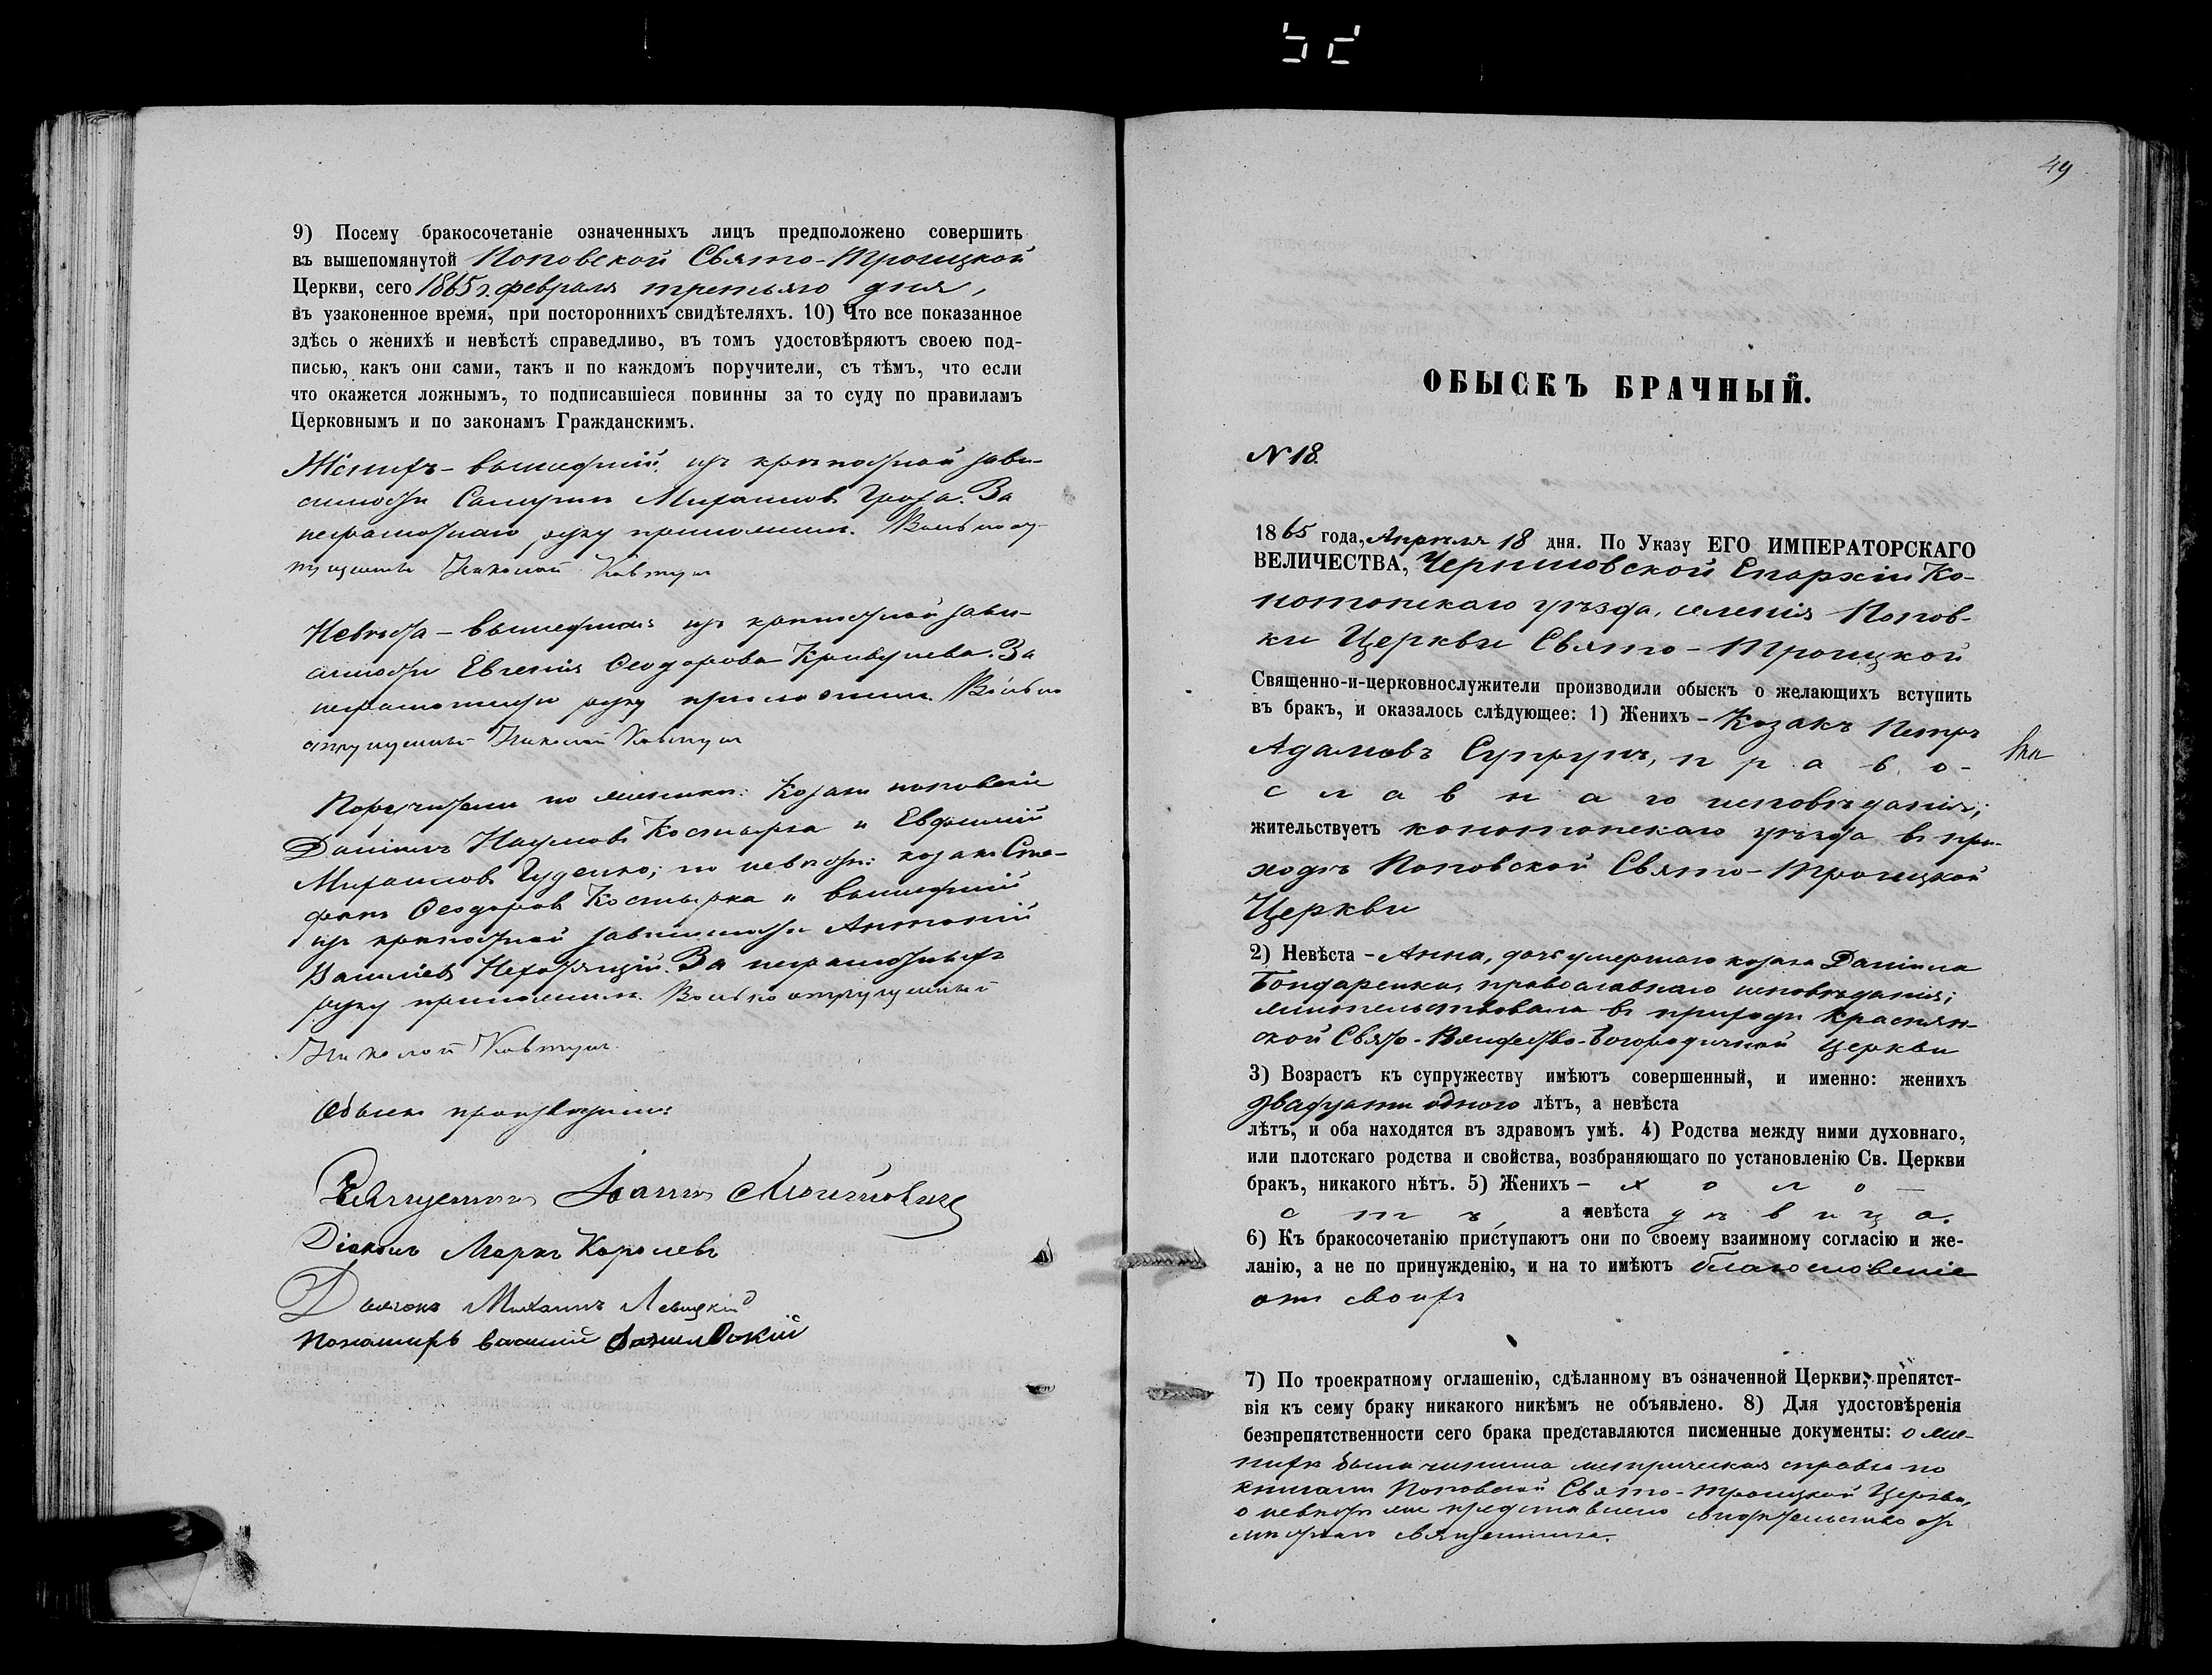 9) Посему бракосочетаніе означенныхъ лицъ предположено совершить
въ вышепомянутой Поповской Свято-Троицкой
Церкви, сего 1865 г. февраля третьяго дня,
въ узаконенное время, при постороннихъ свидѣтеляхъ. 10) Что все показанное
здѣсь о женихѣ и невѣстѣ справедливо, въ томъ удостовѣряютъ своею под-
писью, какъ они сами, такъ и по каждомъ поручители, съ тѣмъ, что если
что окажется ложнымъ, то подписавшіеся повинны за то суду по правиламъ
Церковнымъ и по законамъ Гражданскимъ.
Женихъ - вышедшій изъ крѣпостной зави-
симости Михаиловъ За
неграмотнаго руку приложилъ. Вольноот-
пущенный Николай Ковтунъ
Невѣста - вышедшая изъ крѣпостной зави-
симости Евгенія Ѳеодорова За
неграмотную руку приложилъ Вольно
отпущенный Николай Ковтунъ
Поручители по женихѣ: козаки поповскіе
Даніилъ Наумовъ Костырка и Евфимій
Михаиловъ Гуденко; по невѣстѣ: козакъ Сте-
фанъ Ѳеодоровъ Костырка и вышедшій
изъ крѣпостной зависимости Антоній
Василіевъ За неграмотныхъ
руку приложилъ Вольноотпущенный
Николай Ковтунъ.
Обыскъ производили:
Священникъ Іоаннъ
Діаконъ Маркъ Королевъ
Дьячокъ Михаилъ Левицкій
Пономарь Василій
49
ОБЫСКЪ БРАЧНЫЙ.
N 18.
1865 года, Апрѣля 18 дня. По Указу ЕГО ИМПЕРАТОРСКАГО
ВЕЛИЧЕСТВА, Черниговской Епархіи Ко-
нотопскаго уѣзда, селенія Попов-
ки Церкви Свято-Троицкой
Священно-и-церковнослужители производили обыскъ о желающихъ вступить
въ бракъ, и оказалось слѣдующее: 1) Женихъ - Козакъ Петръ
Адамовъ Супрунъ, право-
славнаго исповѣданія;
жительствуетъ конотопскаго уѣзда въ при-
ходѣ Поповской Свято-Троицкой
Церкви
2) Невѣста - Анна, дочь умершаго козака Даніила
Бондаренка, православнаго исповѣданія;
жительствовала въ приходѣ Краснян-
ской Свято-Рождество-Богородичной Церкви
3) Возрастъ къ супружеству имѣютъ совершенный, и именно: женихъ
двадцати одного лѣтъ, а невѣста
лѣтъ, и оба находятся въ здравомъ умѣ. 4) Родства между ними духовнаго,
или плотскаго родства и свойства, возбраняющаго по установленію Св. Церкви
бракъ, никакого нѣтъ. 5) Женихъ - холо-
стъ, а невѣста дѣвица.
6) Къ бракосочетанію приступаютъ они по своему взаимному согласію и же-
ланію, а не по принужденію, и на то имѣютъ благословеніе
отъ своихъ
7) По троекратному оглашенію, сдѣланному въ означенной Церкви, препятст-
вія къ сему браку никакого никѣмъ не объявлено. 8) Для удостовѣренія
безпрепятственности сего брака представляются писменные документы: о же-
нихѣ была чинима метрическая справка по
книгамъ Поповской Свято-Троицкой Церкви,
о невѣстѣ же представлено свидѣтельство отъ
мѣстнаго священника.